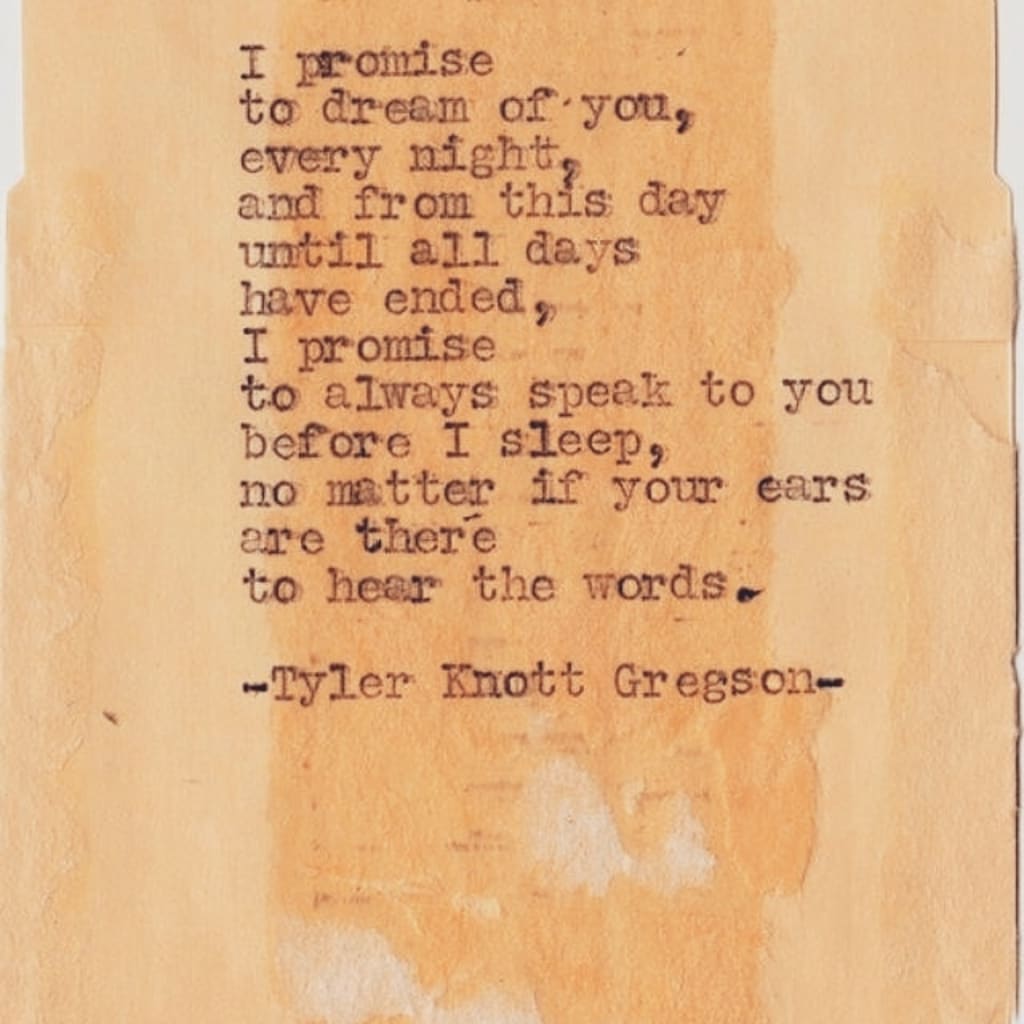 I promise
to dream of you,
every night,
and from this day
until all days
have ended,
I promise
to always speak to you
before I sleep,
no matter if your ears
are there
to hear the words.
-Tyler Knott Gregson-